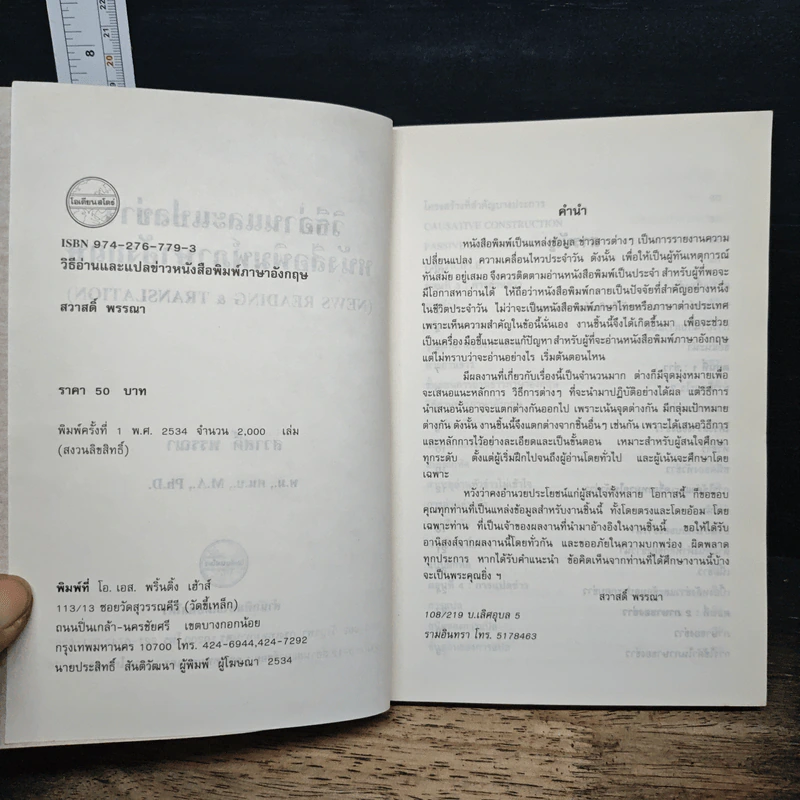 โอเดียนสโตร์
ISBN 974-276-779-3
วิธีอ่านและแปลข่าวหนังสือพิมพ์ภาษาอังกฤษ
สวาสดิ์ พรรณา
ราคา 50 บาท
พิมพ์ครั้งที่ 1 พ.ศ. 2534 จำนวน 2,000 เล่ม
(สงวนลิขสิทธิ์)
พิมพ์ที่ โอ. เอส. พริ้นติ้ง เฮ้าส์
113/13 ซอยวัดสุวรรณคีรี (วัดขี้เหล็ก)
ถนนปิ่นเกล้า-นครชัยศรี เขตบางกอกน้อย
กรุงเทพมหานคร 10700 โทร. 424-6944,424-7292
นายประสิทธิ์ สันติวัฒนา ผู้พิมพ์ ผู้โฆษณา 2534
คำนำ
หนังสือพิมพ์เป็นแหล่งข้อมูล ข่าวสารต่างๆ เป็นการรายงานความ
เปลี่ยนแปลง ความเคลื่อนไหวประจำวัน ดังนั้น เพื่อให้เป็นผู้ทันเหตุการณ์
ทันสมัย อยู่เสมอ จึงควรติดตามอ่านหนังสือพิมพ์เป็นประจำ สำหรับผู้ที่พอจะ
มีโอกาสหาอ่านได้ ให้ถือว่าหนังสือพิมพ์กลายเป็นปัจจัยที่สำคัญอย่างหนึ่ง
ในชีวิตประจำวัน ไม่ว่าจะเป็นหนังสือพิมพ์ภาษาไทยหรือภาษาต่างประเทศ
เพราะเห็นความสำคัญในข้อนี้นั่นเอง งานชิ้นนี้จึงได้เกิดขึ้นมา เพื่อจะช่วย
เป็นเครื่องมือชี้แนะและแก้ปัญหา สำหรับผู้ที่จะอ่านหนังสือพิมพ์ภาษาอังกฤษ
แต่ไม่ทราบว่าจะอ่านอย่างไร เริ่มต้นตอนไหน
มีผลงานที่เกี่ยวกับเรื่องนี้เป็นจำนวนมาก ต่างก็มีจุดมุ่งหมายเพื่อ
จะเสนอแนะหลักการ วิธีการต่างๆ ที่จะนำมาปฏิบัติอย่างได้ผล แต่วิธีการ
นำเสนอนั้นอาจจะแตกต่างกันออกไป เพราะเน้นจุดต่างกัน มีกลุ่มเป้าหมาย
ต่างกัน ดังนั้น งานชิ้นนี้จึงแตกต่างจากชิ้นอื่นๆ เช่นกัน เพราะได้เสนอวิธีการ
และหลักการไว้อย่างละเอียดและเป็นขั้นตอน เหมาะสำหรับผู้สนใจศึกษา
ทุกระดับ ตั้งแต่ผู้เริ่มฝึกไปจนถึงผู้อ่านโดยทั่วไป และผู้เน้นจะศึกษาโดย
เฉพาะ
หวังว่าคงอำนวยประโยชน์แก่ผู้สนใจทั้งหลาย โอกาสนี้ ก็ขอขอบ
คุณทุกท่านที่เป็นแหล่งข้อมูลสำหรับงานชิ้นนี้ ทั้งโดยตรงและโดยอ้อม โดย
เฉพาะท่าน ที่เป็นเจ้าของผลงานที่นำมาอ้างอิงในงานชิ้นนี้ ขอให้ได้รับ
อานิสงส์จากผลงานนี้โดยทั่วกัน และขออภัยในความบกพร่อง ผิดพลาด
ทุกประการ หากได้รับคำแนะนำ ข้อคิดเห็นจากท่านที่ได้ศึกษางานนี้บ้าง
จะเป็นพระคุณยิ่ง ฯ
สวาสดิ์ พรรณา
108/219 บ.เลิศอุบล 5
รามอินทรา โทร. 5178463